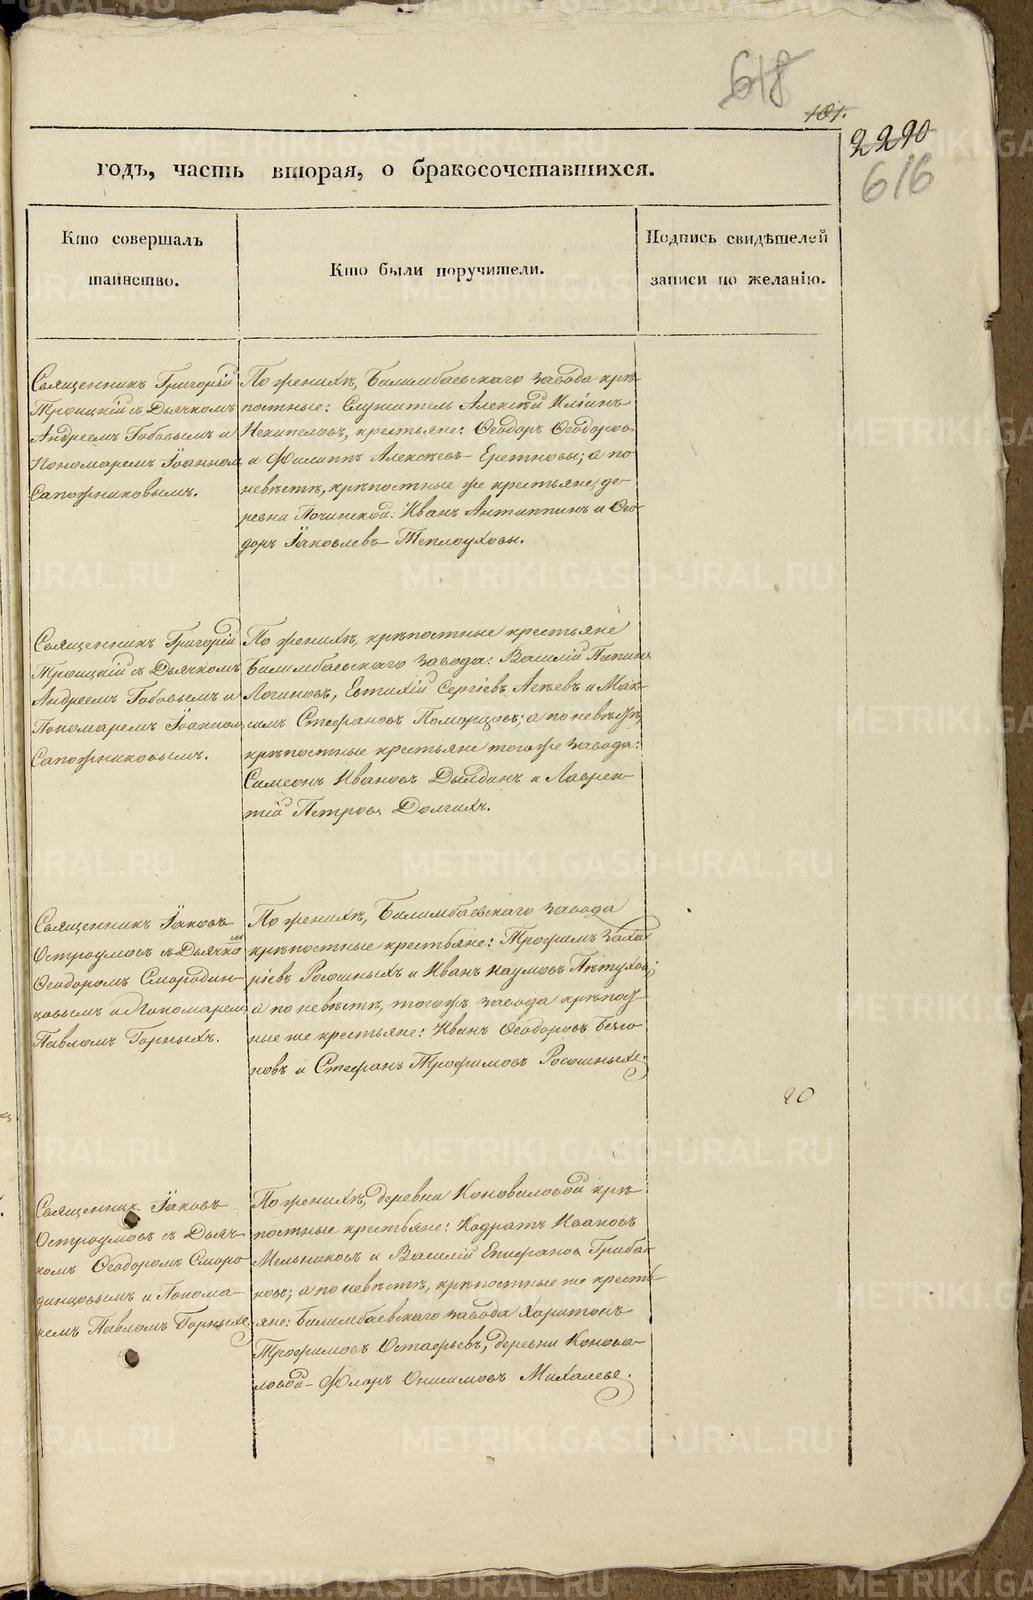 618
101.
2290
616
годъ, часть вторая, о бракосочетавшихся.
Кто совершалъ
таинство.
Кто были поручители.
Подпись свидѣтелей
записи по желанію.
Священникъ Григорій
Троицкій съ Дьячкомъ
Андреемъ Бобовымъ и
Пономаремъ Іоанномъ
Сапожниковымъ.
По женихѣ, Билимбаевскаго завода крѣ-
постные: Служитель Алексѣй Ильинъ
Некипеловъ, крестьяне: Ѳеодоръ Ѳеодоровъ
и Филиппъ Алексѣевъ Еретновы; а по
невѣстѣ, крѣпостные же крестьяне, де-
ревни Починской: Иванъ Антиппинъ и Ѳео-
доръ Іаковлевъ Теплоуховы.
Священникъ Григорій
Троицкій съ Дьячкомъ
Андреемъ Бобовымъ и
Пономаремъ Іоанномъ
Сапожниковымъ.
По женихѣ, крѣпостные крестьяне
Билимбаевскаго завода: Василій
Логиновъ, Евтихій Сергіевъ Агѣевъ и Мак-
симъ Стефановъ Поморцовъ; а по невѣстѣ,
крѣпостные крестьяне того же завода:
Симеонъ Ивановъ Дылдинъ и Лаврен-
тій Петровъ Долгихъ.
Священникъ Іаковъ
Остроумовъ съ Дьячко
мъ
Ѳеодоромъ Смородин-
цовымъ и Пономаремъ
Павломъ Горныхъ.
По женихѣ, Билимбаевскаго завода
крѣпостные крестьяне: Трофимъ Заха
ріевъ Росошныхъ и Иванъ Наумовъ Пѣтуховъ;
а по невѣстѣ, тогожъ завода крѣпост-
ные же крестьяне: Иванъ Ѳеодоровъ Бело-
новъ и Стефанъ Трофимовъ Росошныхъ.
20
Священникъ Іаковъ
Остроумовъ съ Дьяч-
комъ Ѳеодоромъ Сморо
динцовымъ и Понома-
ремъ Павломъ Горныхъ.
По женихѣ, деревни Коноваловой крѣ-
постные крестьяне: Кодратъ Ивановъ
Мельниковъ и Василій Епифановъ Грибан
новъ; а по невѣстѣ, крѣпостные же кресть-
яне: Билимбаевскаго завода Харитонъ
Трофимовъ Остафьевъ, деревни Конова-
ловой Флоръ Онисимовъ Михалевъ.
METRIKI.GASO-URAL.RU